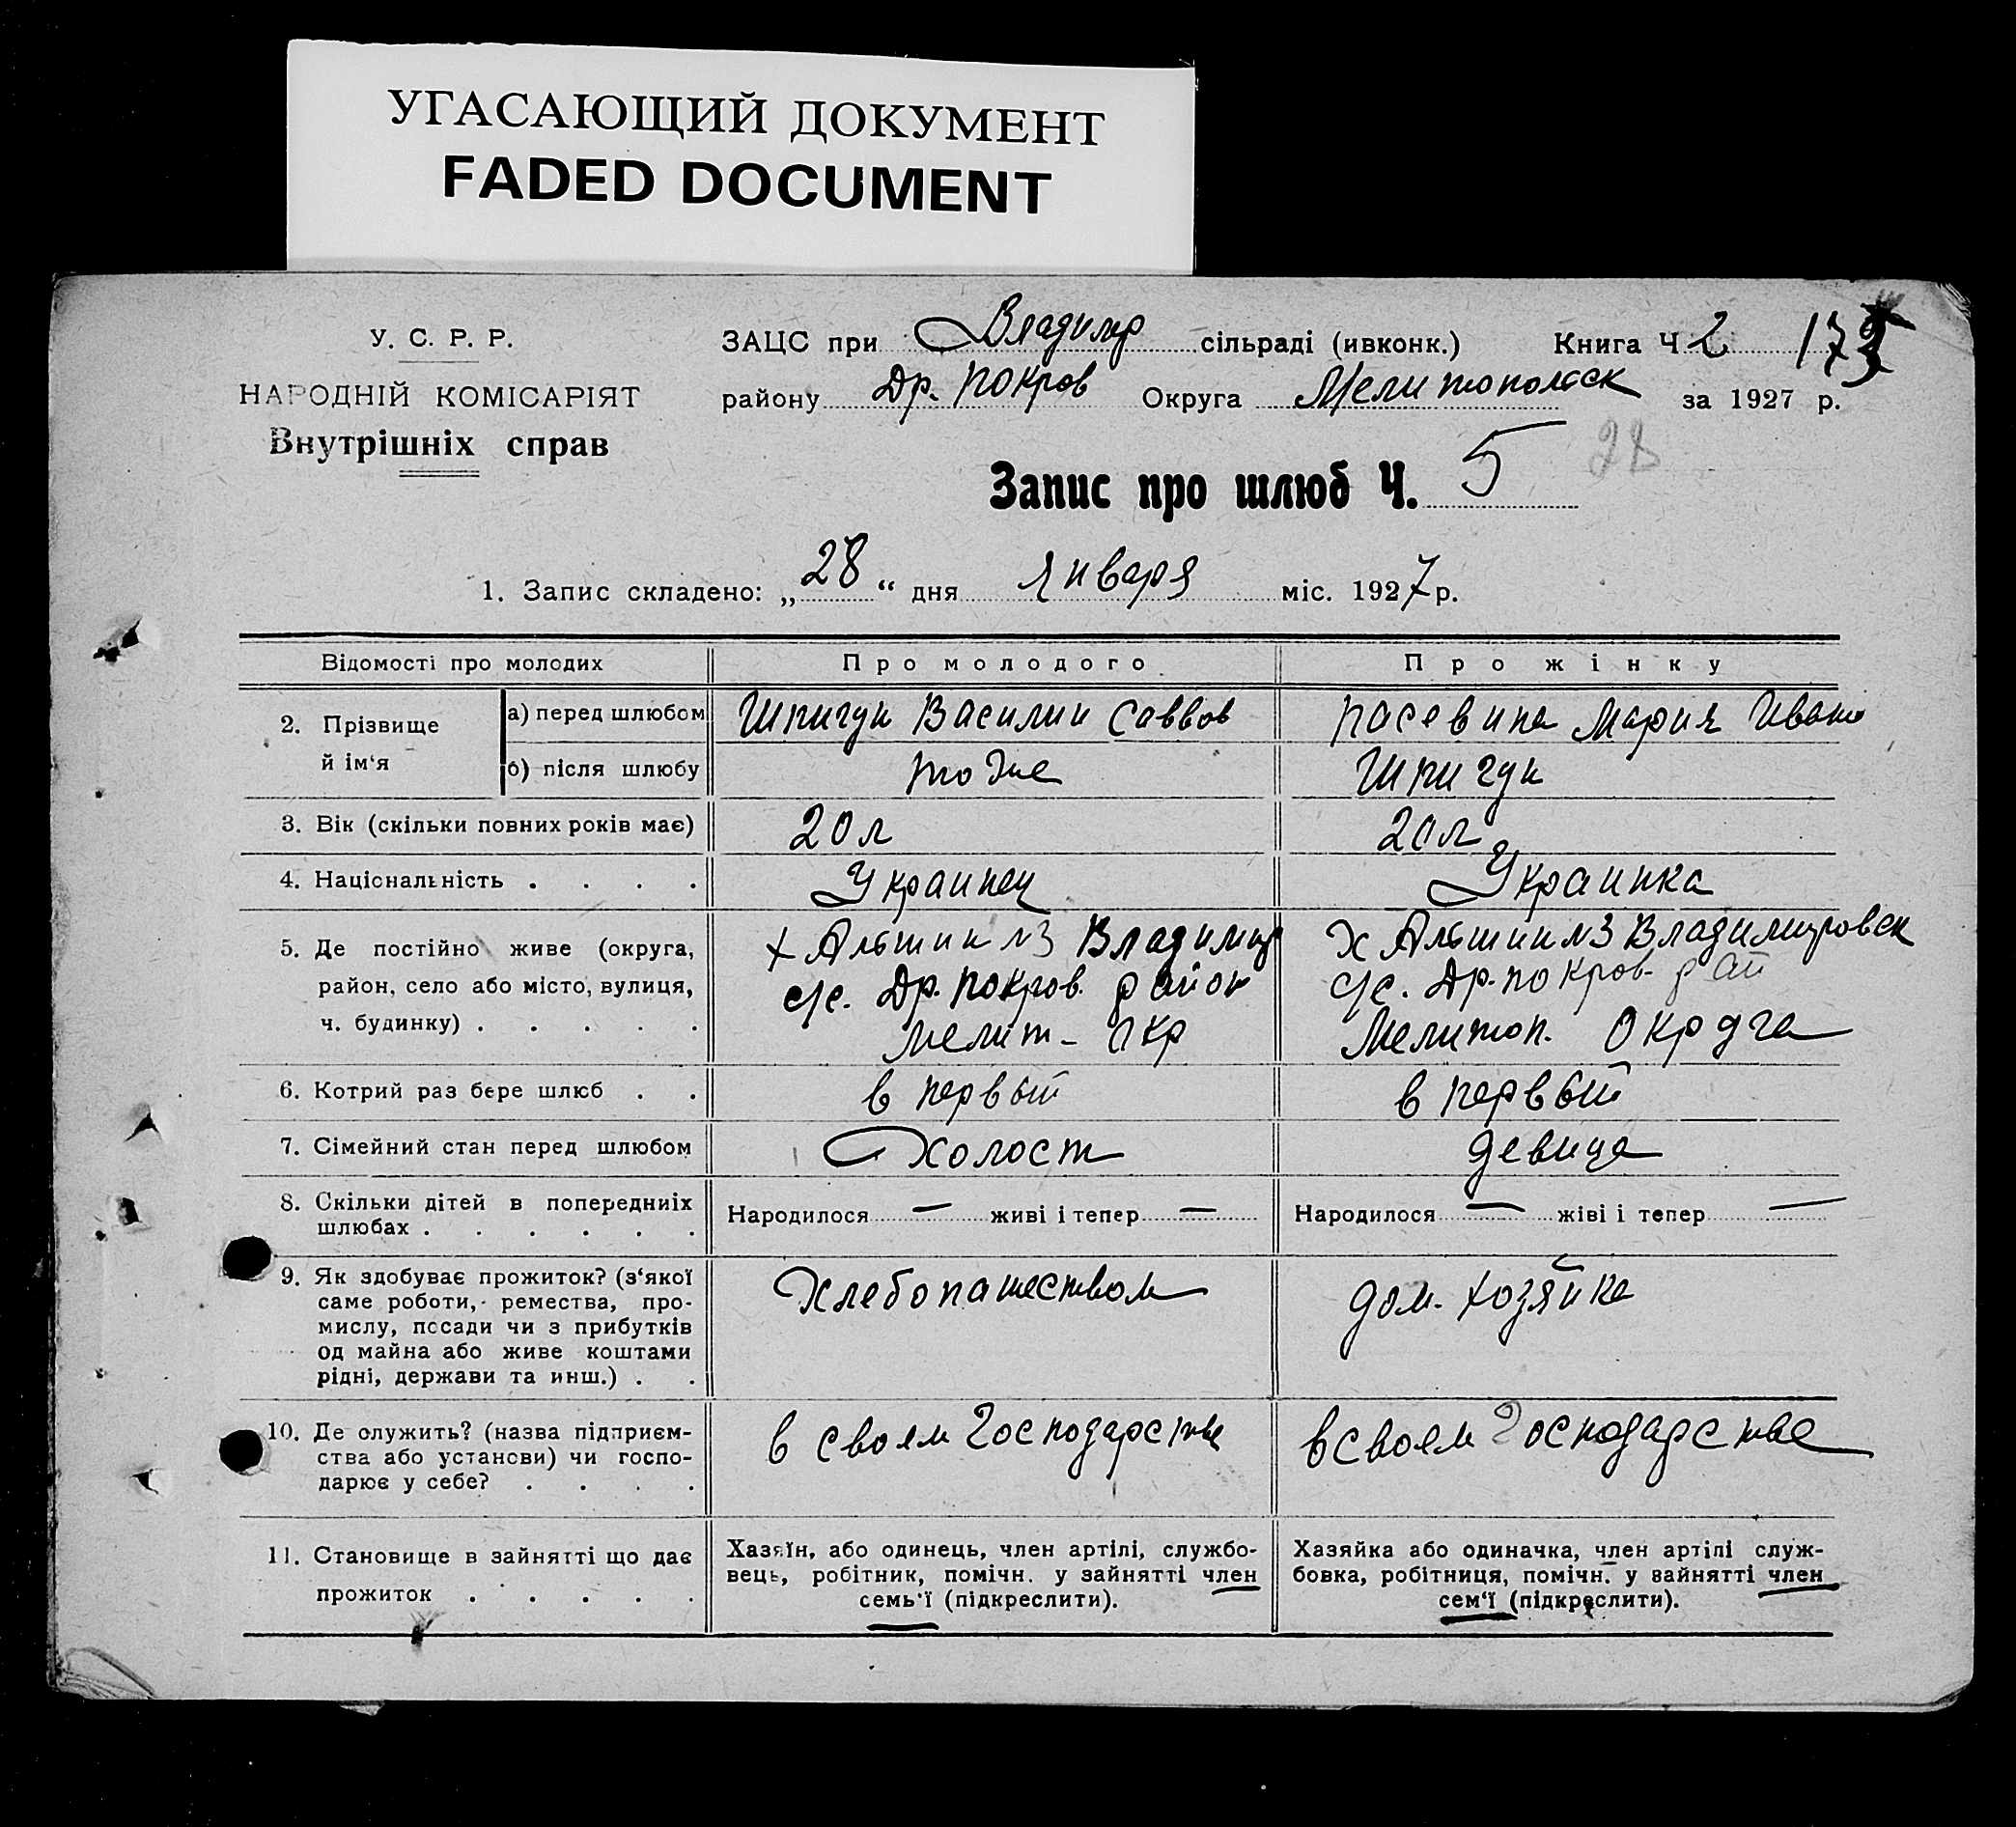 УГАСАЮЩИЙ ДОКУМЕНТ
FADED DOCUMENT
У. С. Р. Р.
НАРОДНІЙ КОМІСАРІЯТ
Внутрішніх справ
ЗАЦС при Владимр сільраді (ивконк.) Книга Ч. 2
району Др. Покров Округа Мелитопольск за 1927 р.
Запис про шлюб Ч. 5 28
1. Запис складено: „28“ дня Января міс. 1927 р.
Відомості про молодих Про молодого Про жінку
2. Прізвище й ім‘я
а) перед шлюбом Шпигун Василии Саввов Пасевина Мария Ивано
б) після шлюбу тоже Шпигун
3. Вік (скільки повних років має) 20 л 20 л
4. Національність . . . . Украинец Украинка
5. Де постійно живе (округа, х Альшин №3 Владимир х Альшин №3 Владимировск
район, село або місто, вулиця, с/с. Др. Покров. район с/с. Др. Покров. рай
ч. будинку) . . . . . Мелит - Окр Мелитоп. Округа
6. Котрий раз бере шлюб . . в первый в первый
7. Сімейний стан перед шлюбом Холост девица
8. Скільки дітей в попередниіх Народилося — живі і тепер — Народилося — жіві і тепер —
шлюбах . . . . . .
9. Як здобуває прожиток? (з‘якої Хлебопашеством дом. хозяйка
саме роботи, ремества, про-
мислу, посади чи з прибутків
од майна або живе коштами
рідні, держави та инш.) . .
10. Де служить? (назва підприєм- в своем Господарстве в своем Господарстве
ства або установи) чи госпо-
дарює у себе? . . . .
11. Становище в зайнятті що дає
прожиток . . . . .
Хазяїн, або одинець, член артілі, службо-
вець, робітник, помічн. у зайнятті член
семь‘ї (підкреслити).
Хазяйка або одиначка, член артілі служ-
бовка, робітниця, помічн. у зайнятті член
сем‘ї (підкреслити).